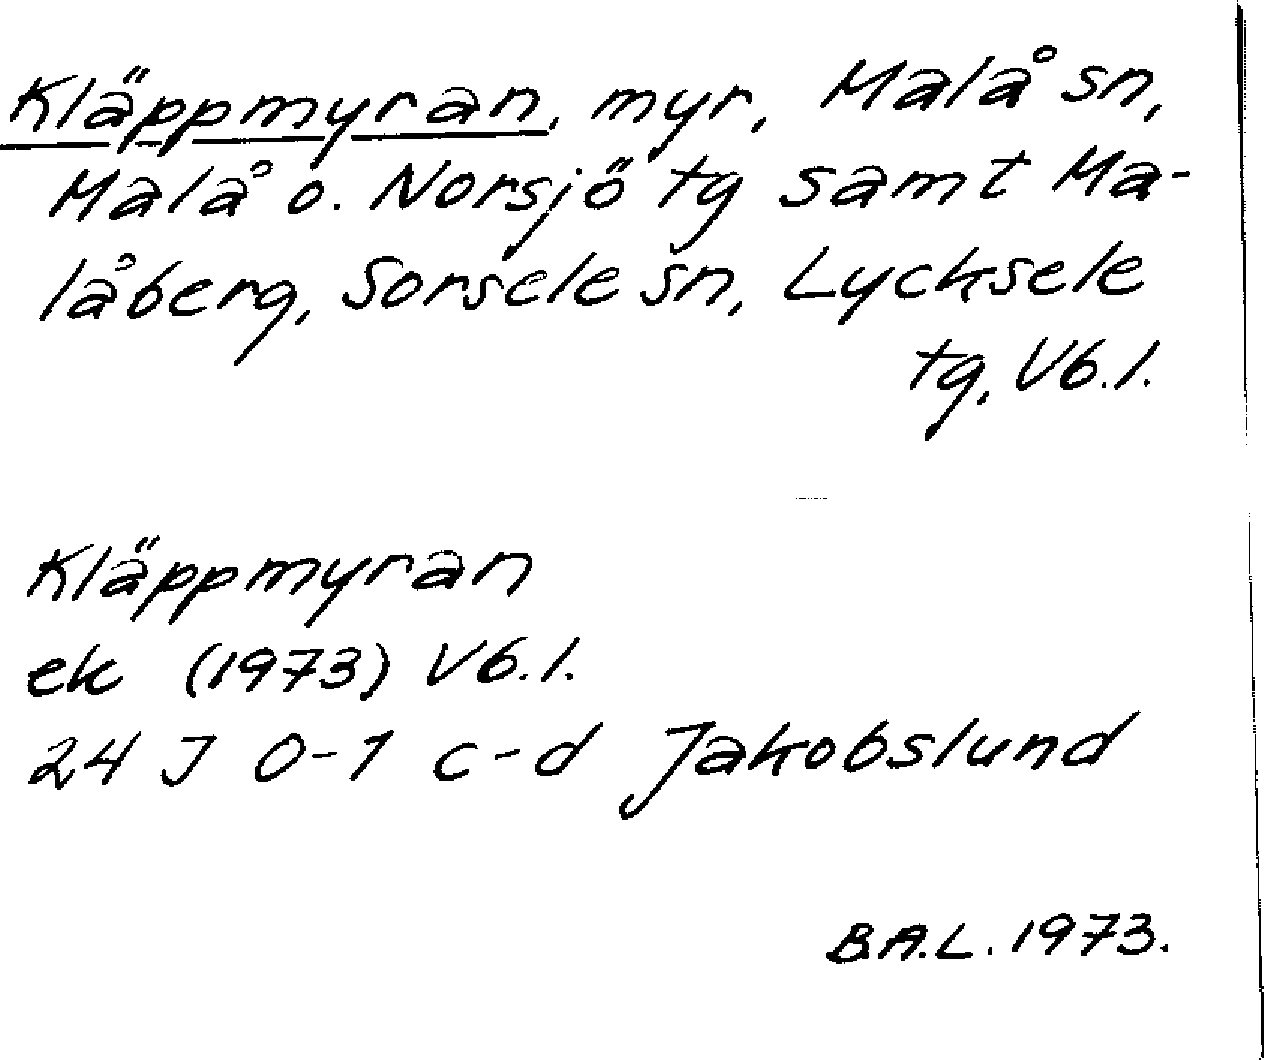 Kläppmyran, myr, Malå sn,
Malå o. Norsjö tg samt Ma-
låberg, Sorsele sn, Lycksele
tg, Vb.l.
Kläppmyran
ek (1973) Vb.l.
24 J 0-1 c-d Jakobslund
B.A.L. 1973.